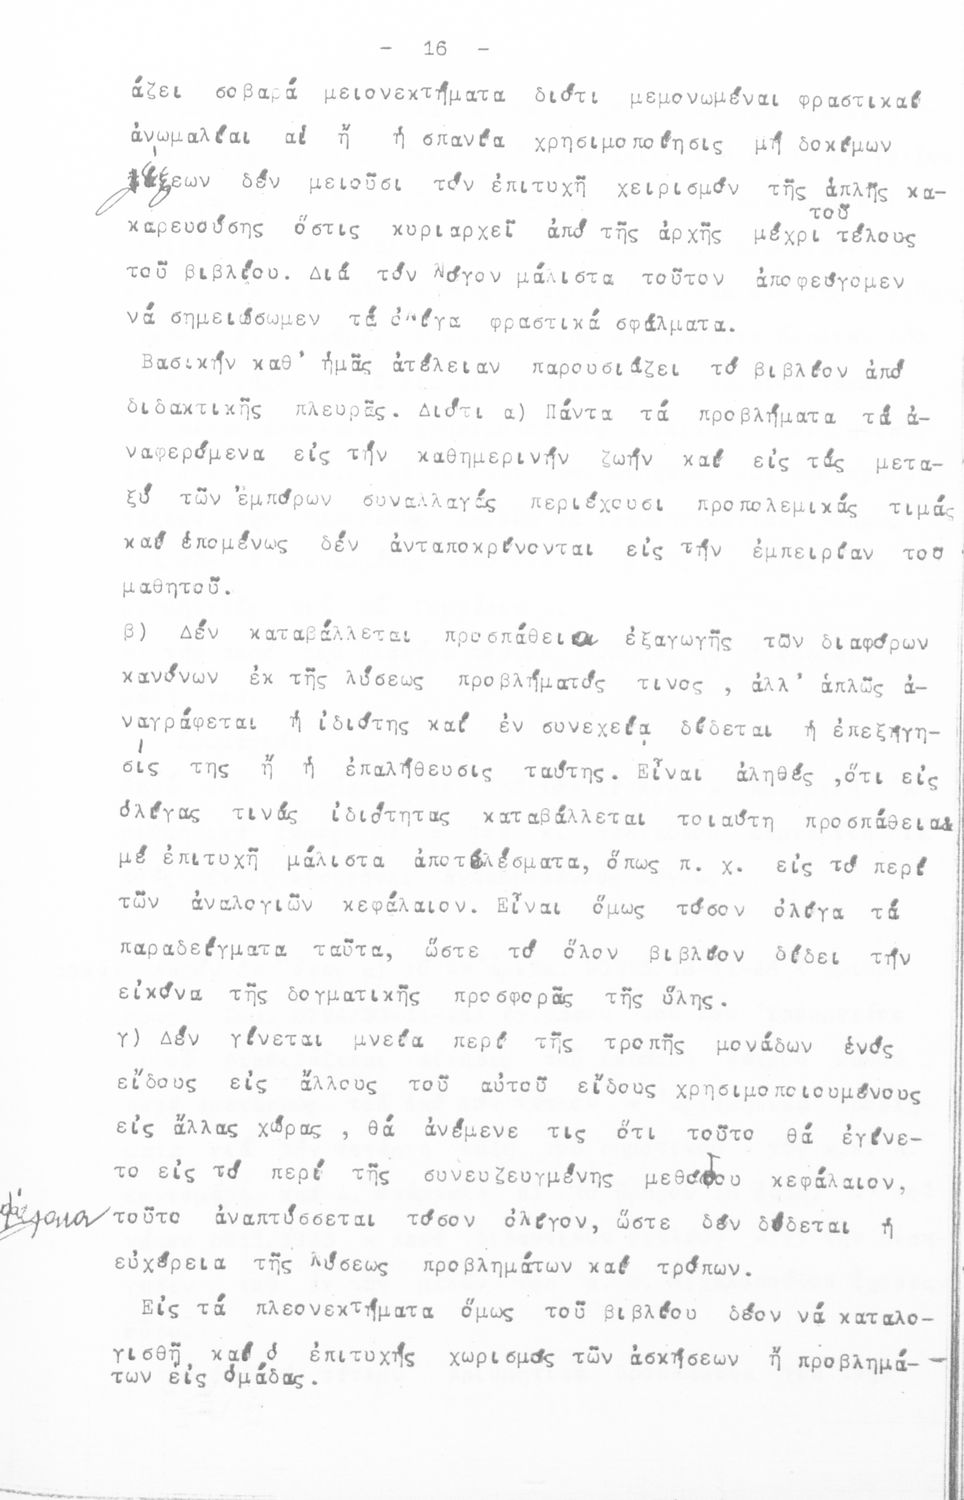 - 16 -
άζει σοβαρά μειονεκτήματα διότι μεμονωμέναι φραστικαί
ἀνωμαλίαι αἱ ἤ ἡ σπανία χρησιμοποίησις μή δοκίμων
λέξεων δέν μειοῦσι τόν ἐπιτυχῆ χειρισμόν τῆς ἁπλῆς κα-
τοῦ
καρευούσης ὅστις κυριαρχεῖ ἀπό τῆς ἀρχῆς μέχρι τέλους
τοῦ βιβλίου. Διά τόν λόγον μάλιστα τοῦτον ἀποφεύγομεν
νά σημειώσωμεν τά ὀλίγα φραστικά σφάλματα.
Βασικήν καθ' ἡμᾶς ἀτέλειαν παρουσιάζει τό βιβλίον ἀπό
διδακτικῆς πλευρᾶς. Διότι α) Πάντα τά προβλήματα τά ἀ-
ναφερόμενα εἰς τήν καθημερινήν ζωήν καί εἰς τάς μετα-
ξύ τῶν ἐμπόρων συναλλαγάς περιέχουσι προπολεμικάς τιμάς
καί ἑπομένως δέν ἀνταποκρίνονται εἰς τήν ἐμπειρίαν του
μαθητοῦ.
β) Δέν καταβάλλεται προσπάθεια ἐξαγωγῆς τῶν διαφόρων
κανόνων ἐκ τῆς λύσεως προβλήματός τινος , ἀλλ' ἁπλῶς ἀ-
ναγράφεται ἡ ἰδιότης καί ἐν συνεχείᾳ δίδεται ἡ ἐπεξήγη-
σίς της ἤ ἡ ἐπαλήθευσις ταύτης. Εἶναι ἀληθές ,ὅτι εἰς
ὀλίγας τινάς ἰδιότητας καταβάλλεται τοιαύτη προσπάθεια
μέ ἐπιτυχῆ μάλιστα ἀποτελέσματα, ὅπως π. χ. εἰς τό περί
τῶν ἀναλογιῶν κεφάλαιον. Εἶναι ὅμως τόσον ὀλίγα τά
παραδείγματα ταῦτα, ὥστε τό ὅλον βιβλίον δίδει τήν
εἰκόνα τῆς δογματικῆς προσφορᾶς τῆς ὕλης.
γ) Δέν γίνεται μνεία περί τῆς τροπῆς μονάδων ἑνός
εἴδους εἰς ἄλλους τοῦ αὐτοῦ εἴδους χρησιμοποιουμένους
εἰς ἄλλας χώρας , θά ἀνέμενε τις ὅτι τοῦτο θά ἐγίνε-
το εἰς τό περί τῆς συνευζευγμένης μεθόδου κεφάλαιον,
τοῦτο ἀναπτύσσεται τόσον ὀλίγον, ὥστε δέν δίδεται ἡ
εὐχέρεια τῆς λύσεως προβλημάτων καί τρόπων.
Εἰς τά πλεονεκτήματα ὅμως τοῦ βιβλίου δέον νά καταλο-
γισθῆ καί ὁ ἐπιτυχής χωρισμός τῶν ἀσκήσεων ἤ προβλημά-
των εἰς ὁμάδας.